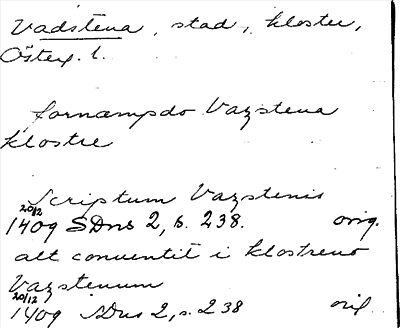 Vadstena, stad, kloster,
Österg. l.
fornæmpdo Vazstena
klostre
Scriptum Vazstenis
20/12
1409 SDns 2, s. 238. orig.
alt conuentit i klostreno
Vazstenum
20/12
1409 SDns 2, s. 238 orig.